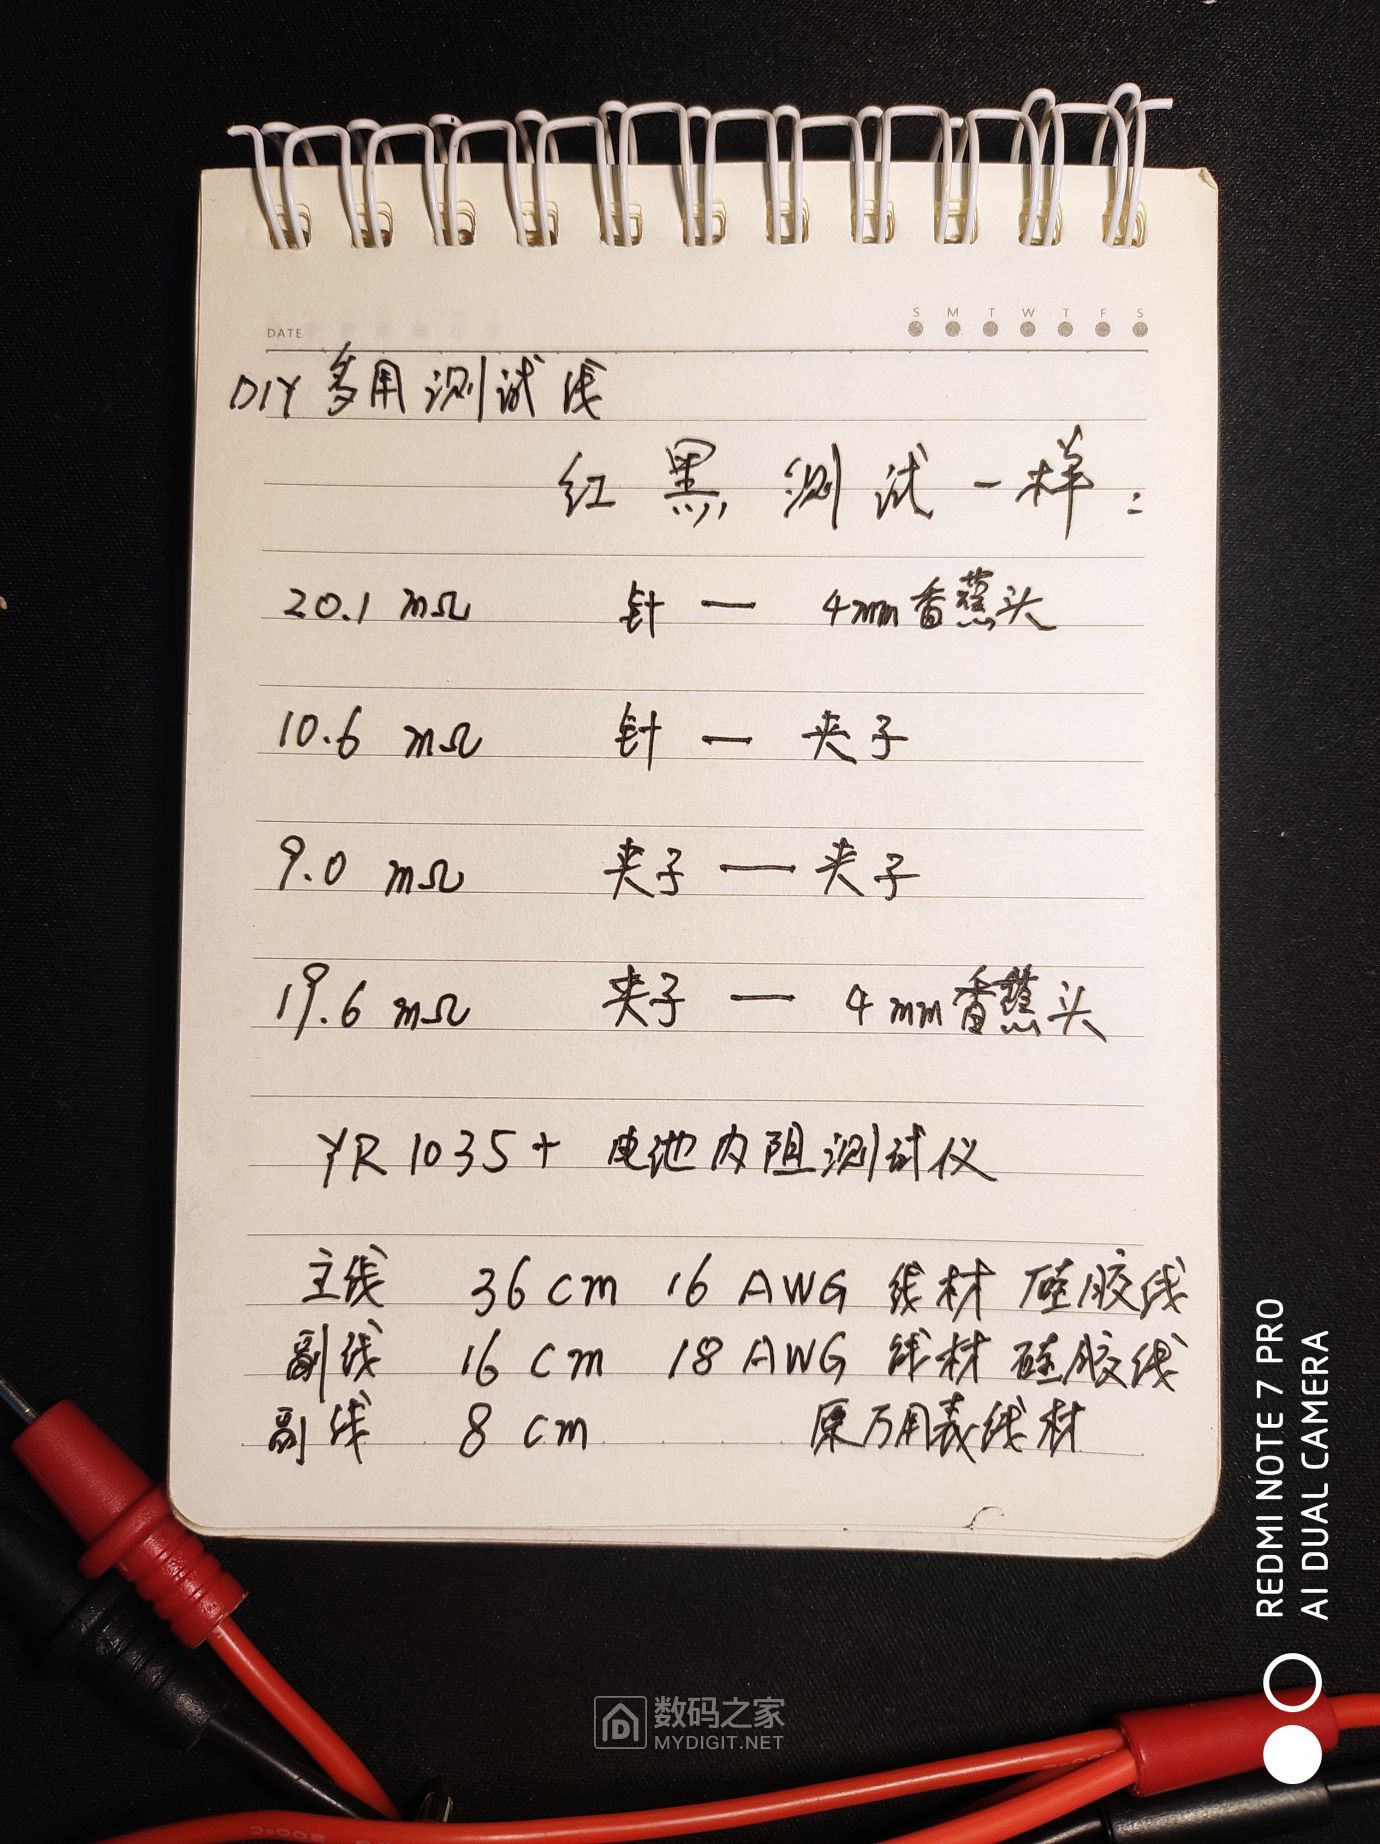 DATE
S M T W T F S
DIY 多用测试线
红黑测试一样:
20.1 mΩ 针 — 4mm香蕉头
10.6 mΩ 针 — 夹子
9.0 mΩ 夹子 — 夹子
19.6 mΩ 夹子 — 4mm香蕉头
YR1035+ 电池内阻测试仪
主线 36cm 16AWG 线材 硅胶线
副线 16cm 18AWG 线材 硅胶线
副线 8cm 原万用表线材
REDMI NOTE 7 PRO
AI DUAL CAMERA
数码之家
MYDIGIT.NET